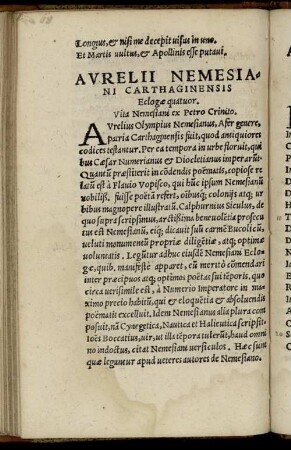 Longus, & nisi me decepit uisus in uno.
Et Martis uultus, & Apollinis esse putaui.
AVRELII NEMESIA-
NI CARTHAGINENSIS
Eclogæ quatuor.
Vita Nemesiani ex Petro Crinito.
AVrelius Olympius Nemesianus, Afer genere,
patria Carthaginensis fuit, quod antiquiores
codices testantur. Per ea tempora in urbe floruit, qui
bus Cæsar Numerianus & Diocletianus imperarūt.
Quantū præstiterit in cōdendis poëmatis, copiose re
latū est à Flauio Vopisco, qui hūc ipsum Nemesianū
nobilissi. fuisse poëtā refert, oībusq; colonijs atq; ur
bibus magnopere illustratū. Calphurnius Siculus, de
quo supra scripsimus, arctissima beneuolētia prosecu
tus est Nemesianū, eiq; dicauit suū carmē Bucolicū,
ueluti monumentū propriæ diligētiæ, atq; optimæ
uoluntatis. Legūtur adhuc eiusdē Nemesiani Eclo-
gæ, quib. manifeste apparet, eū meritò cōmendari
inter præcipuos atq; optimos poëtas sui tēporis, quo
circa uerisimile est, à Numerio Imperatore in ma-
ximo precio habitū, qui & eloquētia & absoluendis
poëmatis excelluit. Idem Nemesianus alia plura com
posuit, nā Cynegetica, Nautica et Halieutica scripsit.
Iois Boccatius, uir, ut illa tēpora tulerūt, haud omni
no indoctus, citat Nemesiani uersiculos. Hæc sunt
quæ leguntur apud ueteres autores de Nemesiano.